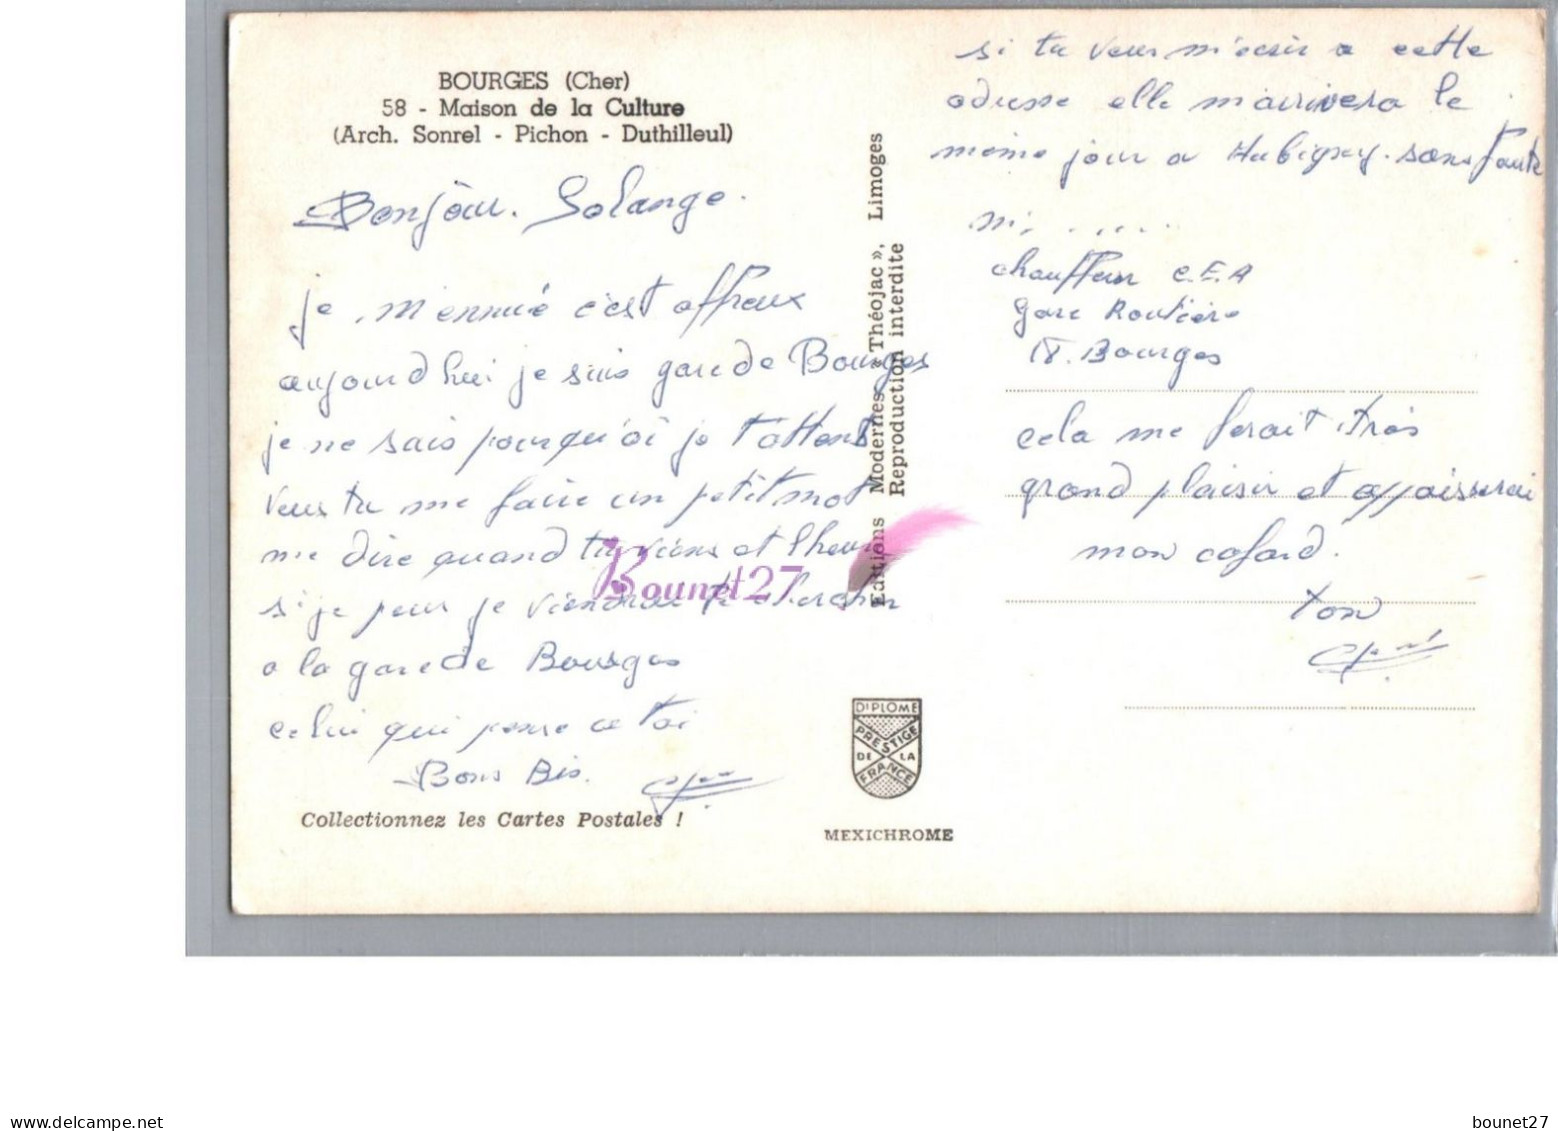 BOURGES (Cher)
58 - Maison de la Culture
(Arch. Sonrel - Pichon - Duthilleul)
Bonjour. Solange.
je m'ennuié c'est affreux
aujourd hui je suis gare de Bourges
je ne sais pourqu'oi je t'attens
veus tu me faire un petit mot
me dire quand tu viens et l'heure
si je peux je viendrai te chercher
a la gare de Bourges
celui qui pense a toi
Bons Bis.
Collectionnez les Cartes Postales !
Editions Modernes « Théojac », Limoges
Reproduction interdite
DIPLOME
PRESTIGE
DE LA
FRANCE
MEXICHROME
si tu veux m'ecrir a cette
adresse elle m'arrivera le
meme jour a Aubigny. sans faute
M. . . . . . .
chauffeur C.E.A
Gare Routière
18. Bourges
cela me ferait très
grand plaisir et appaisserai
mon cafard.
ton
Bounet27
delcampe.net
bounet27